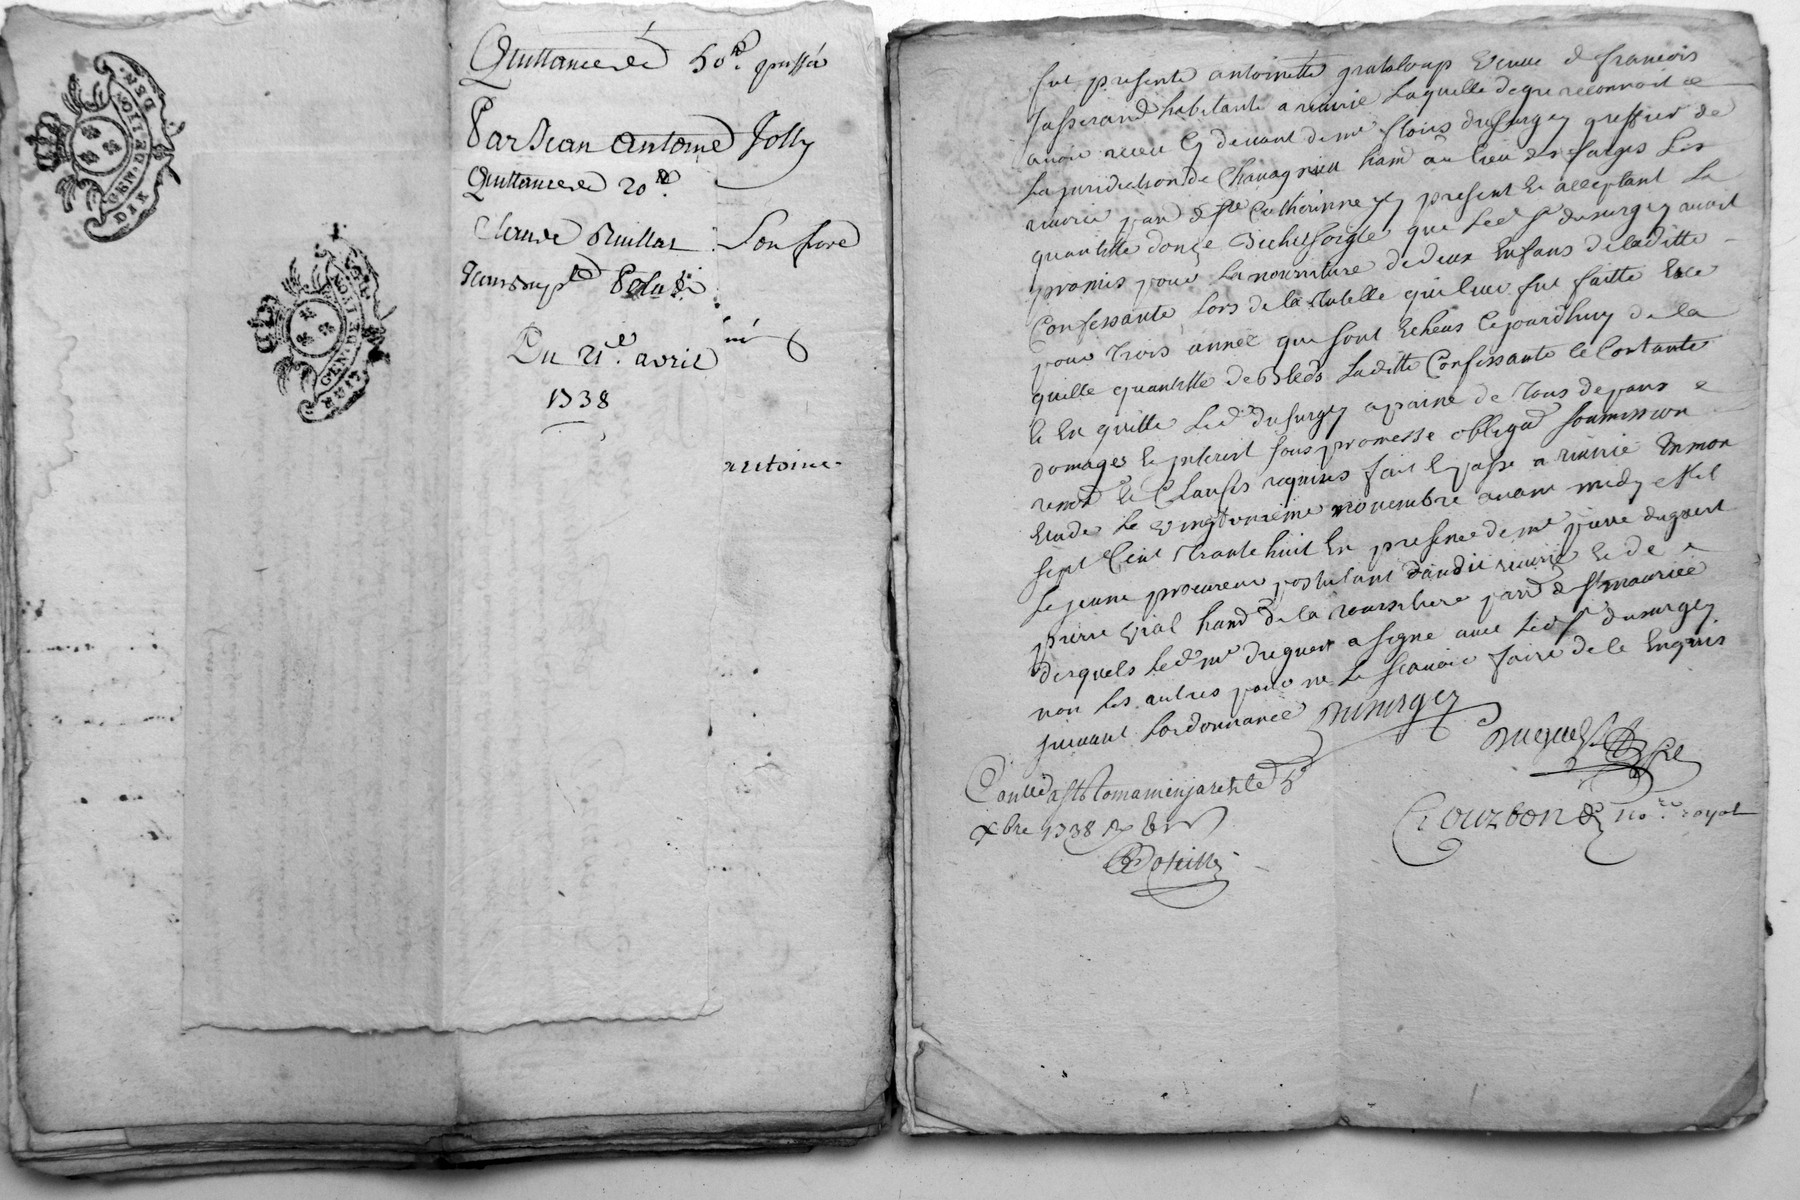 Quittance de 50 ll. passée
Par Jean Antoine Jolly
Quittance de 20 ll
Claude
Son frere
Du 21e. avril
1738
antoine
GEN. DE LION
GEN. DE LION
fut presente antoinette grataloup veuve de francois
Jasserand habitante a riuirie Laquelle de gre reconnoit
auoir receu cy deuant de me flois dusurgey greffier de
La juridiction de Chauagnieu hand au lieu des farges Les
riuirie parr. de Ste Catherinne y present et acceptant La
quantitte donze Bichet soigle que Led. Sr dusurgey auoit
promis pour La nourriture de deux Enfans de laditte
Confessante Lors de la tutelle qui luy fut faitte Et ce
pour trois année que sont Echeus ce jourdhuy de la
quelle quantitte de Bleds Laditte Confessante se Contante
et En quitte Led. dusurgey a paine de tous depans
domages et interest sous promesse obligaon soumission
renon. et Clauses requises fait et passe a riuirie En mon
Etude Le vingt uniéme nouembre auant midy mil
sept Cent trante huit En presence de me pierre duguest
Le jeune procureur postulant dandit riuirie et de
pierre vial hand de la parr. de St maurice
desquels Led. me duguest a signe auec Led. Sr dusurgey
non Les autres pour ne Le scauoir faire de ce Enquis
suiuant Lordonnance Dusurgey
Duguest
Con.lle a St Romain en jarest le 5e
xbre 1738
Crouzbon no.re royal